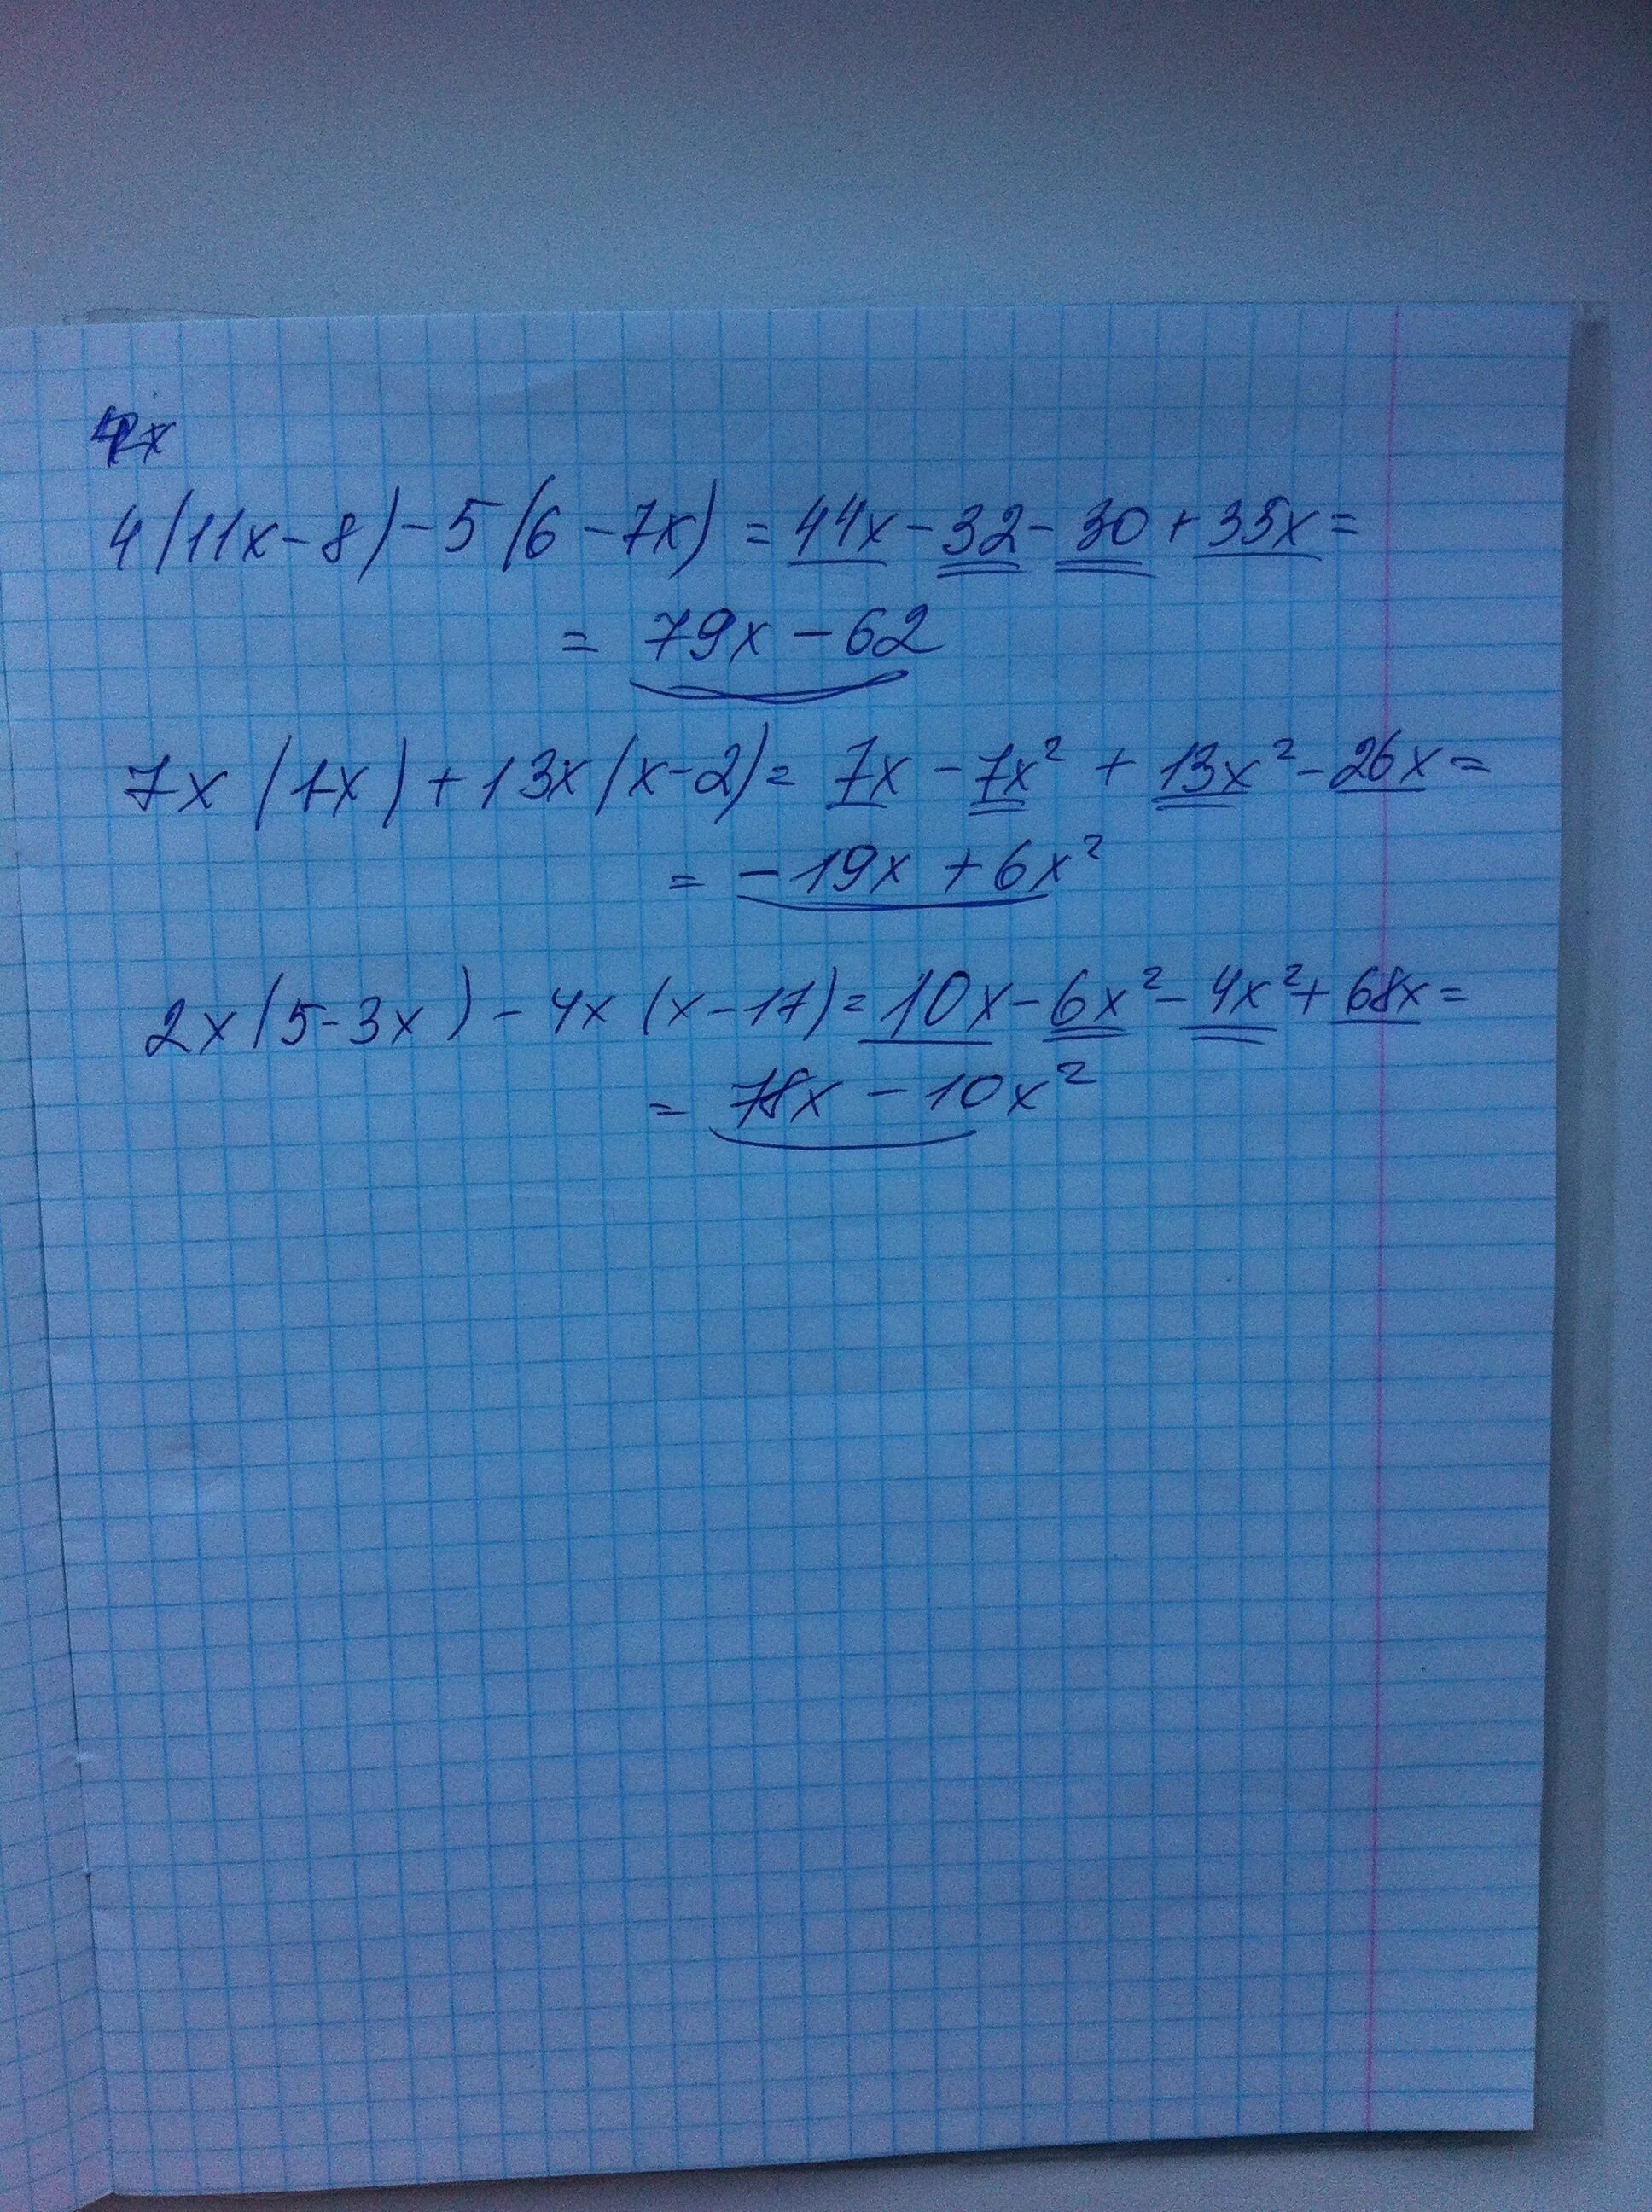 4(11x-8)-5(6-7x)=44x-32-30+35x=
= 79x-62
7x(1-x)+13x(x-2)=7x-7x²+13x²-26x=
= -19x+6x²
2x(5-3x)-4x(x-17)=10x-6x²-4x²+68x=
= 78x-10x²